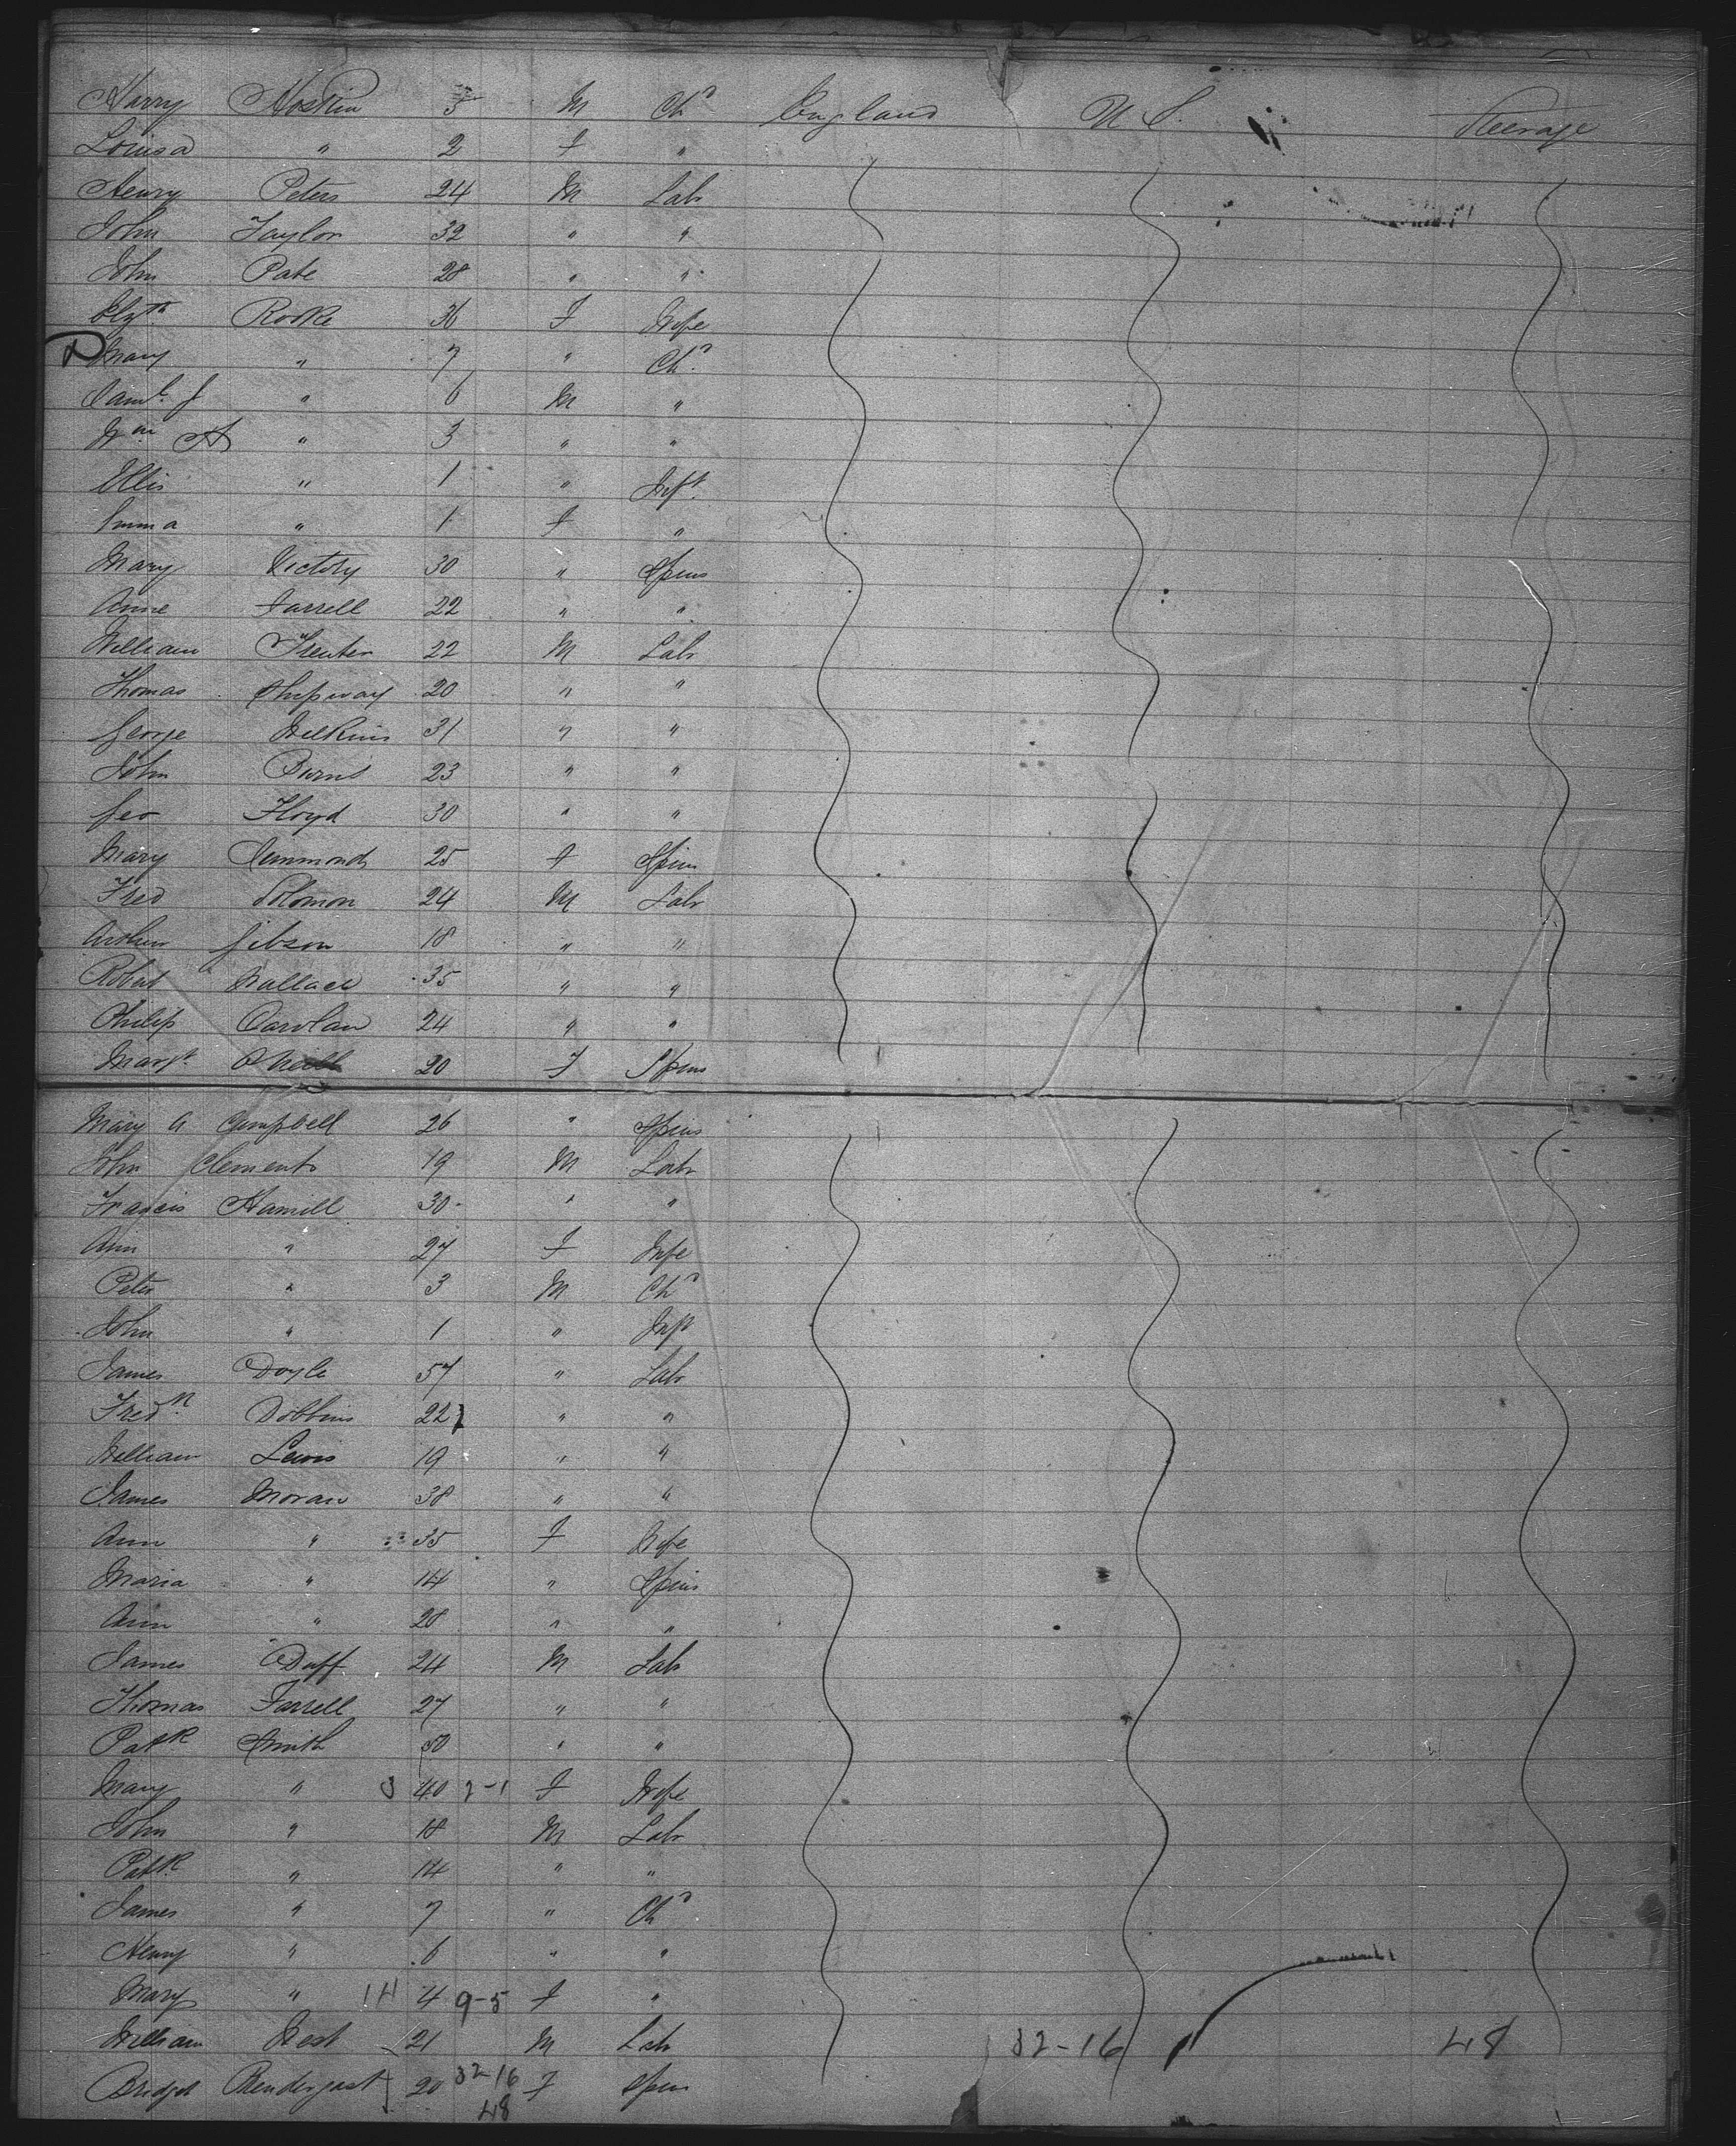 Harry Hoskin 5 M Chd England U.S. Steerage
Louisa " 2 F "
Henry Peters 24 M Labr
John Taylor 32 " "
John Pate 28 " "
Elzth Rooke 36 F Wife
Mary " 7 " Chd
Saml J " 6 M "
Wm A " 3 " "
Ellis " 1 " Inft
Emma " 1 F "
Mary Victory 30 " Spins
Anne Farrell 22 " "
William Treuter 22 M Labr
Thomas Shipway 20 " "
George Wilkins 31 " "
John Burns 23 " "
Geo Floyd 30 " "
Mary Cummonds 25 F Spins
Fred Solomon 24 M Labr
Arthur Gibson 18 " "
Robert Wallace 35 " "
Philip Carolan 24 " "
Margt O'Neill 20 F Spins
Mary A Campbell 26 " Spins
John Clements 19 M Labr
Francis Hamill 30 " "
Ann " 27 F Wife
Peter " 3 M Chd
John " 1 " Inft
James Doyle 57 " Labr
Fredk Dobbins 22 " "
William Lewis 19 " "
James Moran 38 " "
Ann " 35 F Wife
Maria " 14 " Spins
Ann " 28 " "
James Duff 24 M Labr
Thomas Farrell 27 " "
Patk Smith 50 " "
Mary " 3 40 2-1 F Wife
John " 18 M Labr
Patk " 14 " "
James " 7 " Chd
Henry " 6 " "
Mary " 14 4 9-5 F "
William West 21 M Labr 32-16 48
Bridget Prendergast 20 32-16 F Spins
48